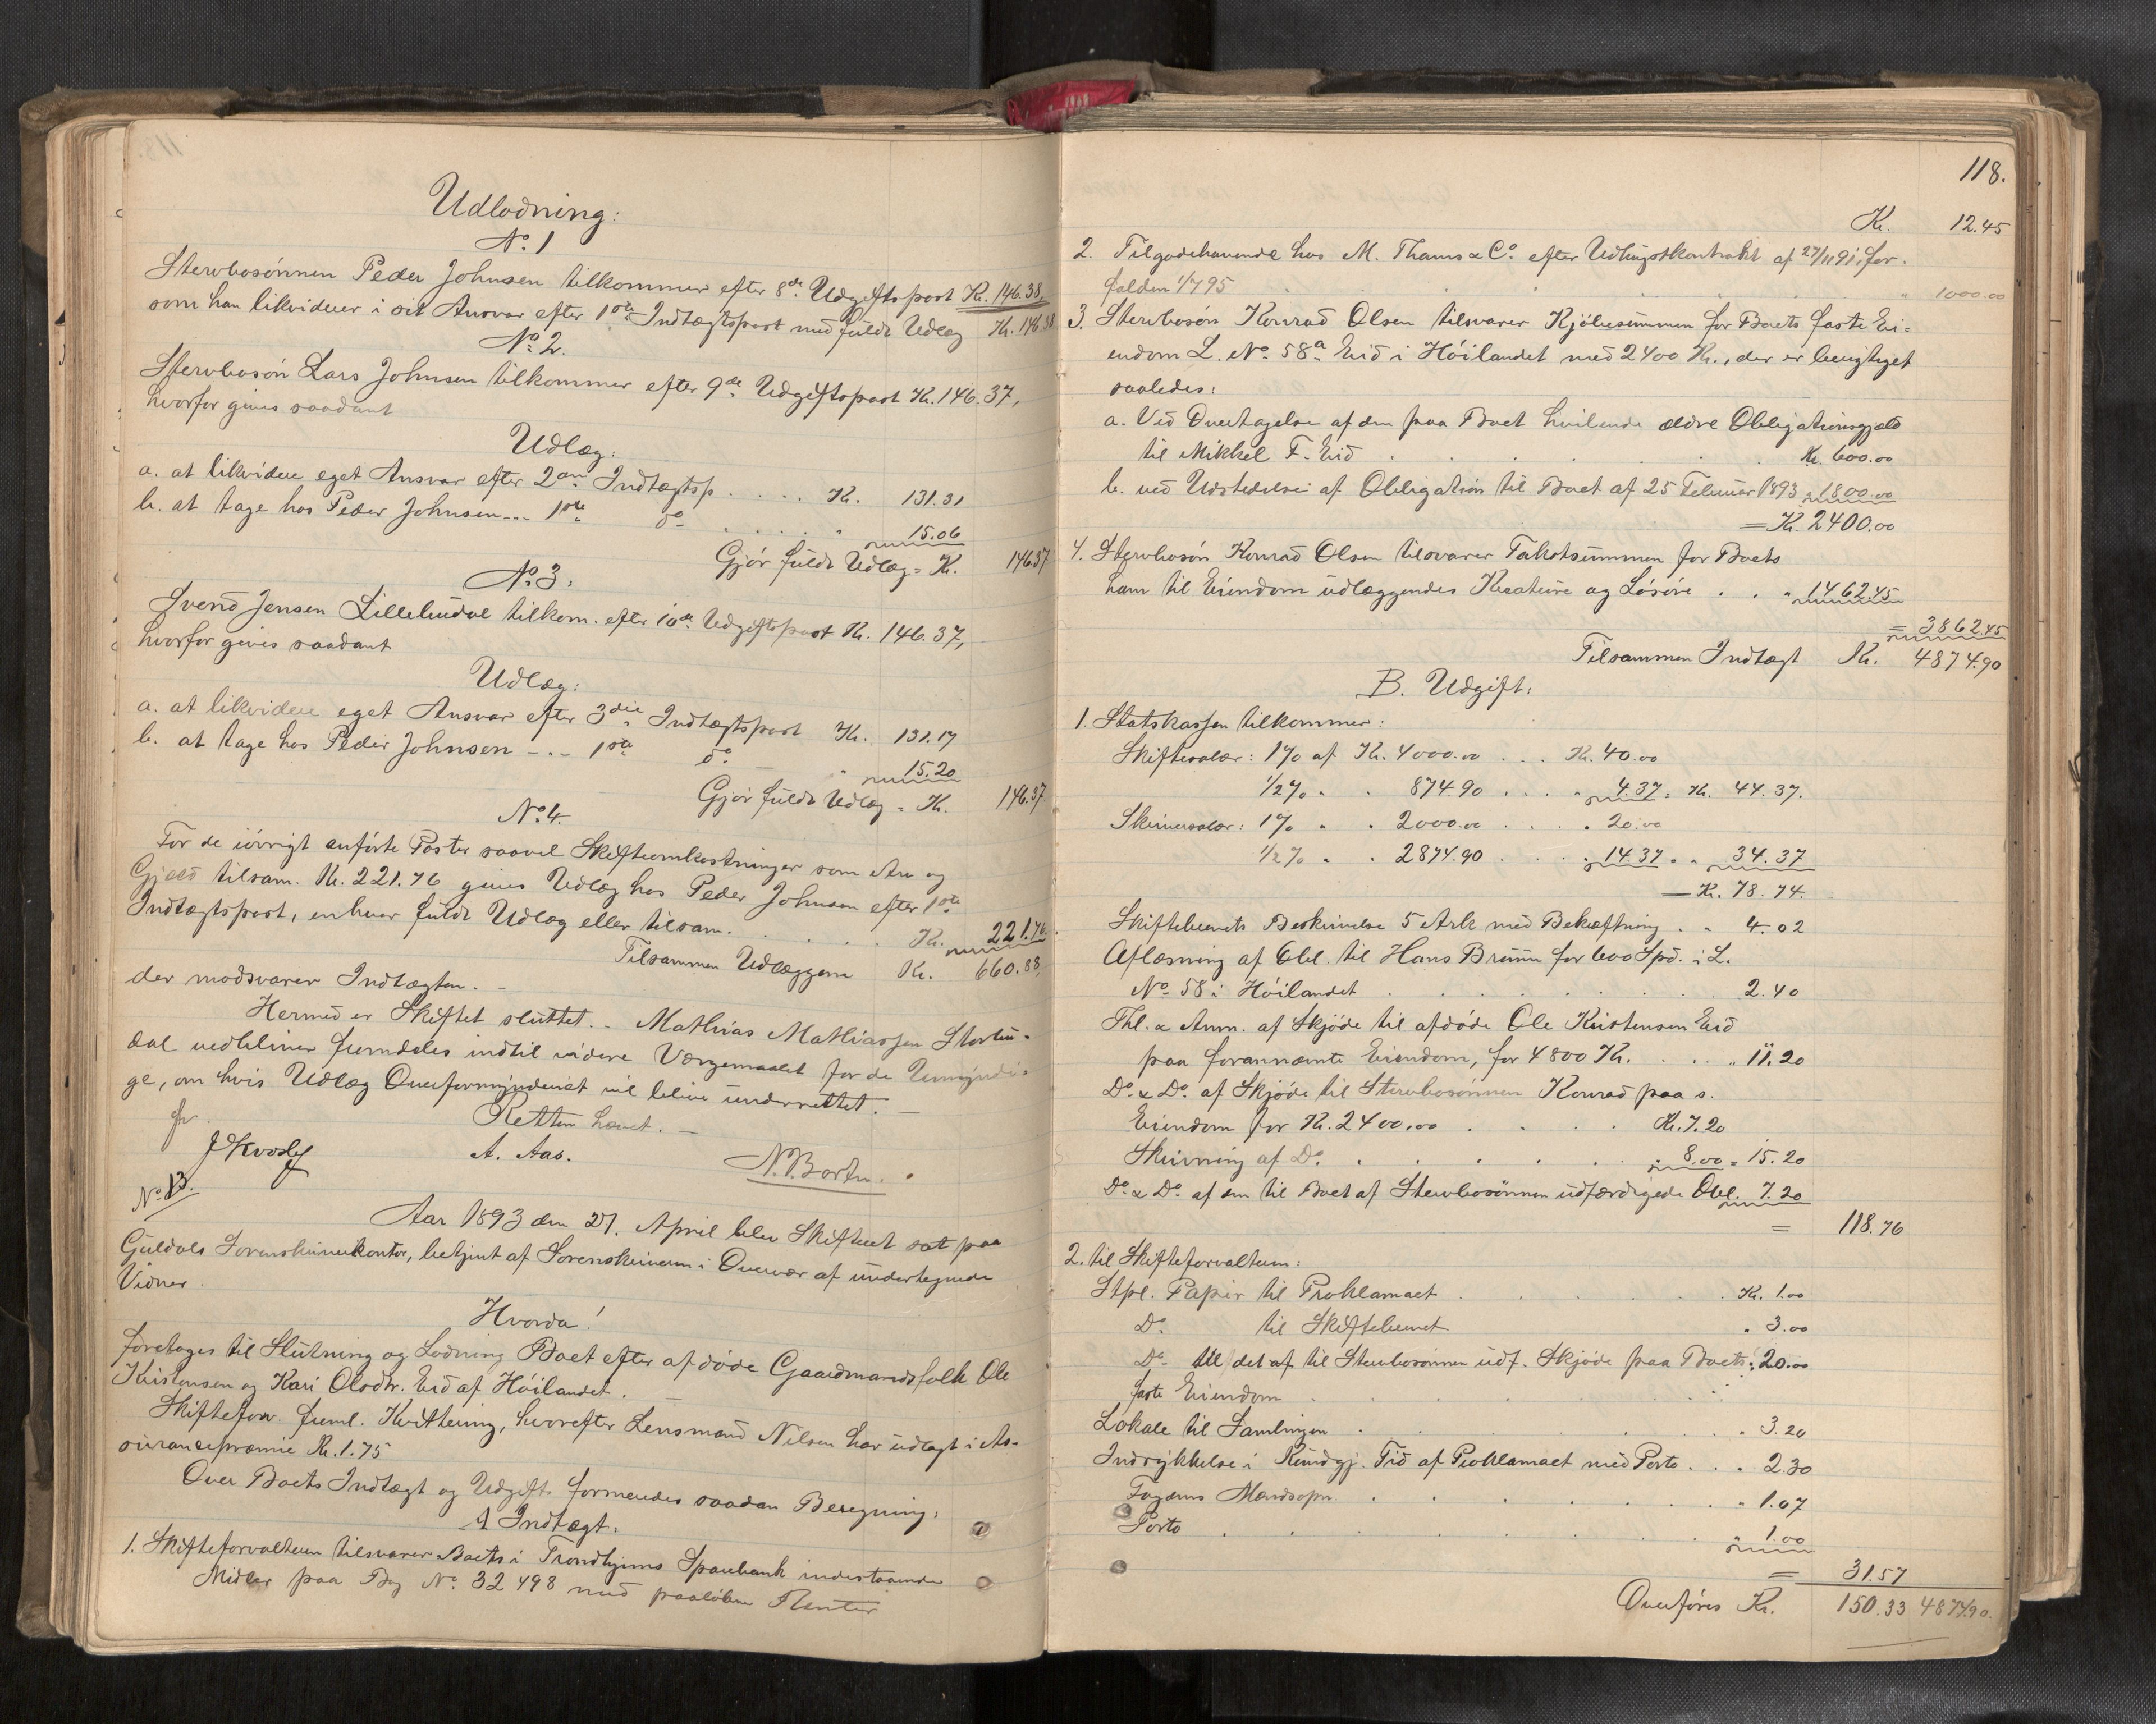 Udlodning:
No. 1
Stervbosönnen Peder Johnsen tilkommer efter 8de Udgiftspost Kr. 146.38,
som han likviderer i sit Ansvar efter 1ste Indtægtspost med fuldt Udlæg Kr. 146.38
No. 2.
Stervbosön Lars Johnsen tilkommer efter 9de Udgiftspost Kr. 146.37,
hvorfor gives saadant
Udlæg:
a. at likvidere eget Ansvar efter 2den Indtægtsp. . . . Kr. 131.31
b. at tage hos Peder Johnsen -.- 1ste do . . . . " 15.06
Gjör fuldt Udlæg = Kr. 146.37
No. 3.
Svend Jensen Lillebudal tilkom. efter 10de Udgiftspost Kr. 146.37,
hvorfor gives saadant
Udlæg:
a. at likvidere eget Ansvar efter 3die Indtægtspost Kr. 131.17
b. at tage hos Peder Johnsen -.- 1ste do - " 15.20
Gjör fuldt Udlæg = Kr. 146.37
No. 4.
For de iövrigt anförte Poster saavel Skifteomkostninger som Arv og
Gjæld tilsam. Kr. 221.76 gives Udlæg hos Peder Johnsen efter 1ste
Indtægtspost, enhver fuldt Udlæg eller tilsam. . . . . . Kr. 221.76.
Tilsammen Udlæggene Kr. 660.88,
der modsvarer Indtægten. -
Hermed er Skiftet sluttet. - Mathias Mathiassen Storbu-
dal vedbliver fremdeles indtil videre Værgemaalet for de Umyndi-
ge, om hvis Udlæg Overformynderiet vil blive underrettet. -
Retten hævet. -
A. Aas.
N. Borten.
No. 13.
Aar 1893 den 27. April blev Skifteret sat paa
Guldals Sorenskriverkontor, betjent af Sorenskriveren i Overvær af undertegnede
Vidner.
Hvorda!
foretoges til Slutning og Lodning Boet efter afdöde Gaardmandsfolk Ole
Kristensen og Kari Olsdtr. Eid af Höilandet. -
Skifteforv. freml. Kvittering, hvorefter Lensmand Nilsen har udlagt i As-
surancepræmie Kr. 1.75
Over Boets Indtægt og Udgift formeredes saadan Beregning:
A Indtægt:
1. Skifteforvalteren tilsvarer Boets i Trondhjems Sparebank indestaaende
Midler paa Bog No. 32498 med paalöbne Renter
118.
Kr. 12.45
2. Tilgodehavende hos M. Thams & Co. efter Udhugstkontrakt af 27/11 91, for-
falden 1/7 95 . . . . . . " 1000.00
3. Stervbosön Konrad Olsen tilsvarer Kjöbesummen for Boets faste Ei-
endom L. No. 58a Eid i Höilandet med 2400 Kr., der er berigtiget
saaledes:
a. Ved Overtagelse af den paa Boet hvilende ældre Obligationsgjæld
til Mikkel F. Eid . . . . . . . Kr. 600.00
b. ved Udstedelse af Obligation til Boet af 25 Februar 1893 " 1800.00
= Kr. 2400.00
4. Stervbosön Konrad Olsen tilsvarer Takstsummen for Boets
ham til Eiendom udlæggendes Kreature og Lösöre . . " 1462.45
= 3862.45
Tilsammen Indtægt Kr. 4874.90
B. Udgift:
1. Statskassen tilkommer:
Skiftesalær: 1% af Kr. 4000.00 . . . Kr. 40.00
1/2% " " 874.90 . . . . " 4.37 = Kr. 44.37.
Skriversalær: 1% " " 2000.00 . . . . " 20.00
1/2% " " 2874.90 . . . " 14.37 = " 34.37
= Kr. 78.74.
Skiftebrevets Beskrivelse 5 Ark med Bekræftning . " 4.02
Aflæsning af Obl. til Hans Bruun for 600 Spd. i L.
No. 58 i Höilandet . . . . . . . 2.40
Thl. & Ann. af Skjöde til afdöde Ole Kristensen Eid
paa forannævnte Eiendom, for 4800 Kr. . . . " 11.20
Do. & Do. af Skjöde til Stervbosönnen Konrad paa s.
Eiendom for Kr. 2400.00 . . . . Kr. 7.20
Skrivning af Do. . . . . . " 8.00 = 15.20
Do. & Do. af den til Boet af Stervbosönnen udfærdigede Obl. 7.20
= 118.76
2. til Skifteforvalteren:
Stpl. Papir til Proklamaet . . . . . . Kr. 1.00
Do. til Skiftebrevet " 3.00
Do. til det af til Stervbosönnen udf. Skjöde paa Boets " 20.00
faste Eiendom
Lokale til Samlingen . . . . " 3.20
Indrykkelse i Kundgj. Tid. af Proklamaet med Porto . . " 2.30
. . . . . . " 1.07
Porto . . . . . . . " 1.00
= 31.57
Overföres Kr. 150.33 4874.90.